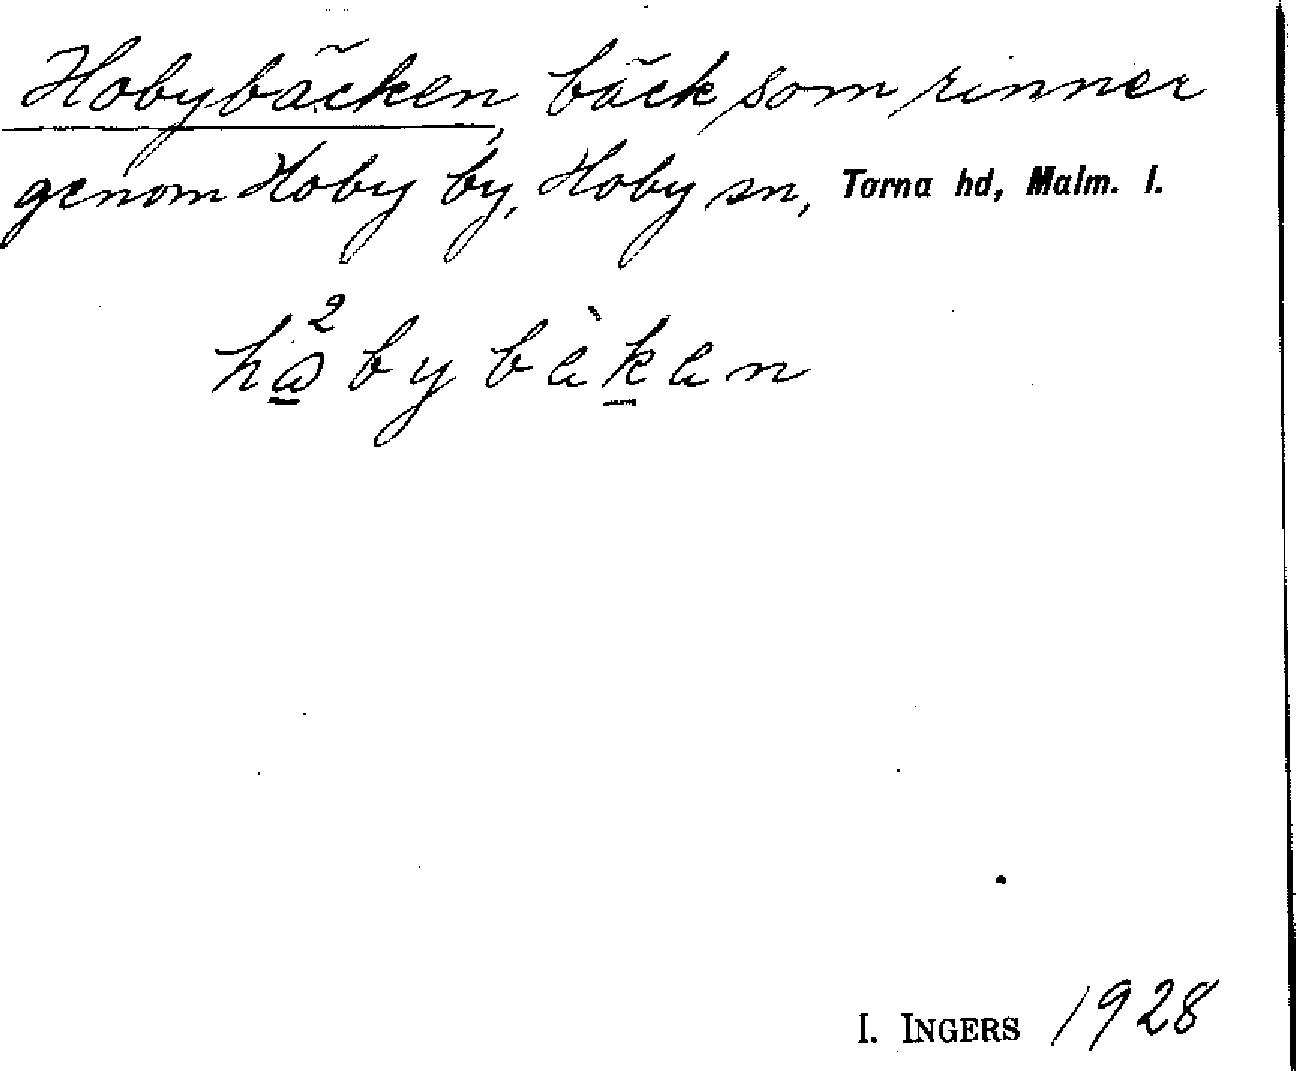 Hobybäcken, bäck som rinner
genom Hoby by, Hoby sn, Torna hd, Malm. l.
I. INGERS 1928